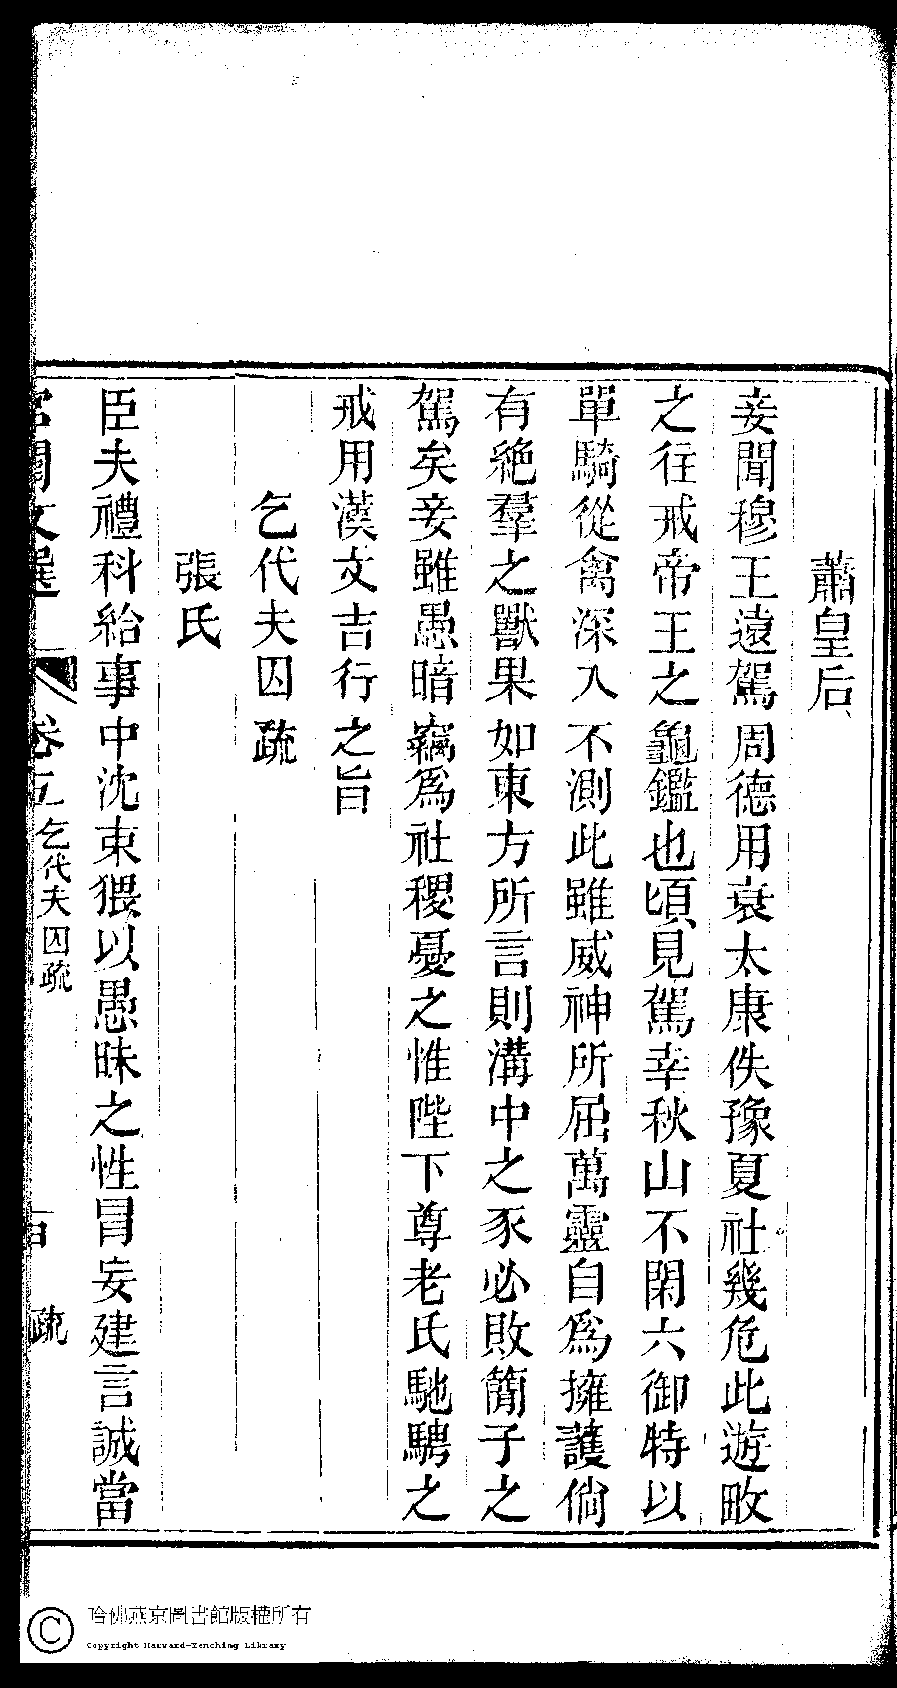 蕭皇后
妾聞穆王遠駕周德用衰太康佚豫夏社幾危此遊畋
之往戒帝王之龜鑑也頃見駕幸秋山不閑六御特以
單騎從禽深入不測此雖威神所屆萬靈自爲擁護倘
有絶羣之獸果如東方所言則溝中之豕必敗簡子之
駕矣妾雖愚暗竊爲社稷憂之惟陛下尊老氏馳騁之
戒用漢文吉行之旨
乞代夫囚疏
張氏
臣夫禮科給事中沈束猥以愚昧之性冒妄建言誠當
宮閨文選 卷五 乞代夫囚疏 疏
哈佛燕京圖書館版權所有
Copyright Harvard-Yenching Library